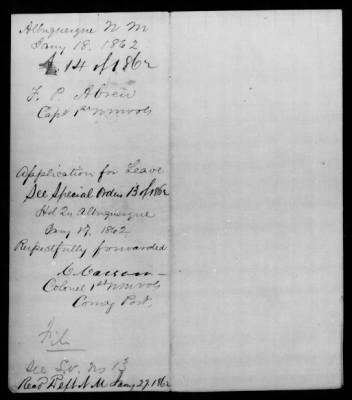 Albuquerque N M
Jany 18. 1862
A. 14 of 1862
F. P. Abreu
Capt 1st NM vols
Application for Leave
See Special Order 13 of 1862
Hd Qu Albuquerque
Jany 17. 1862
Respectfully forwarded
C Carson
Colonel 1st NM vols
Comg Post,
File
See S.O. No 13
Recd Dept N M Jany 27. 1862